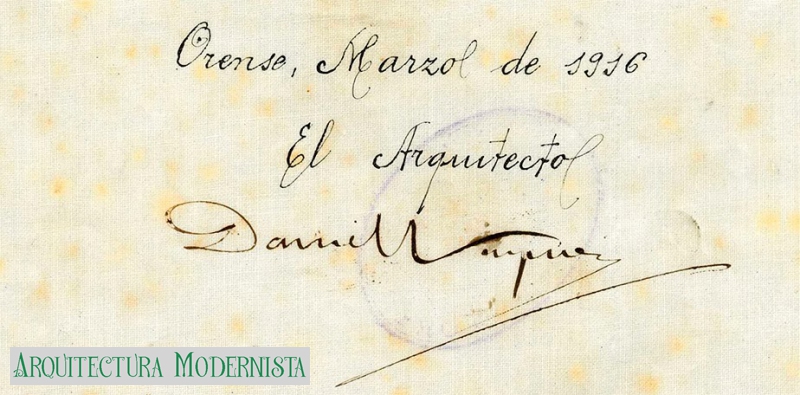 Orense, Marzo de 1916
El Arquitecto
Daniel Vazquez
ARQUITECTURA MODERNISTA